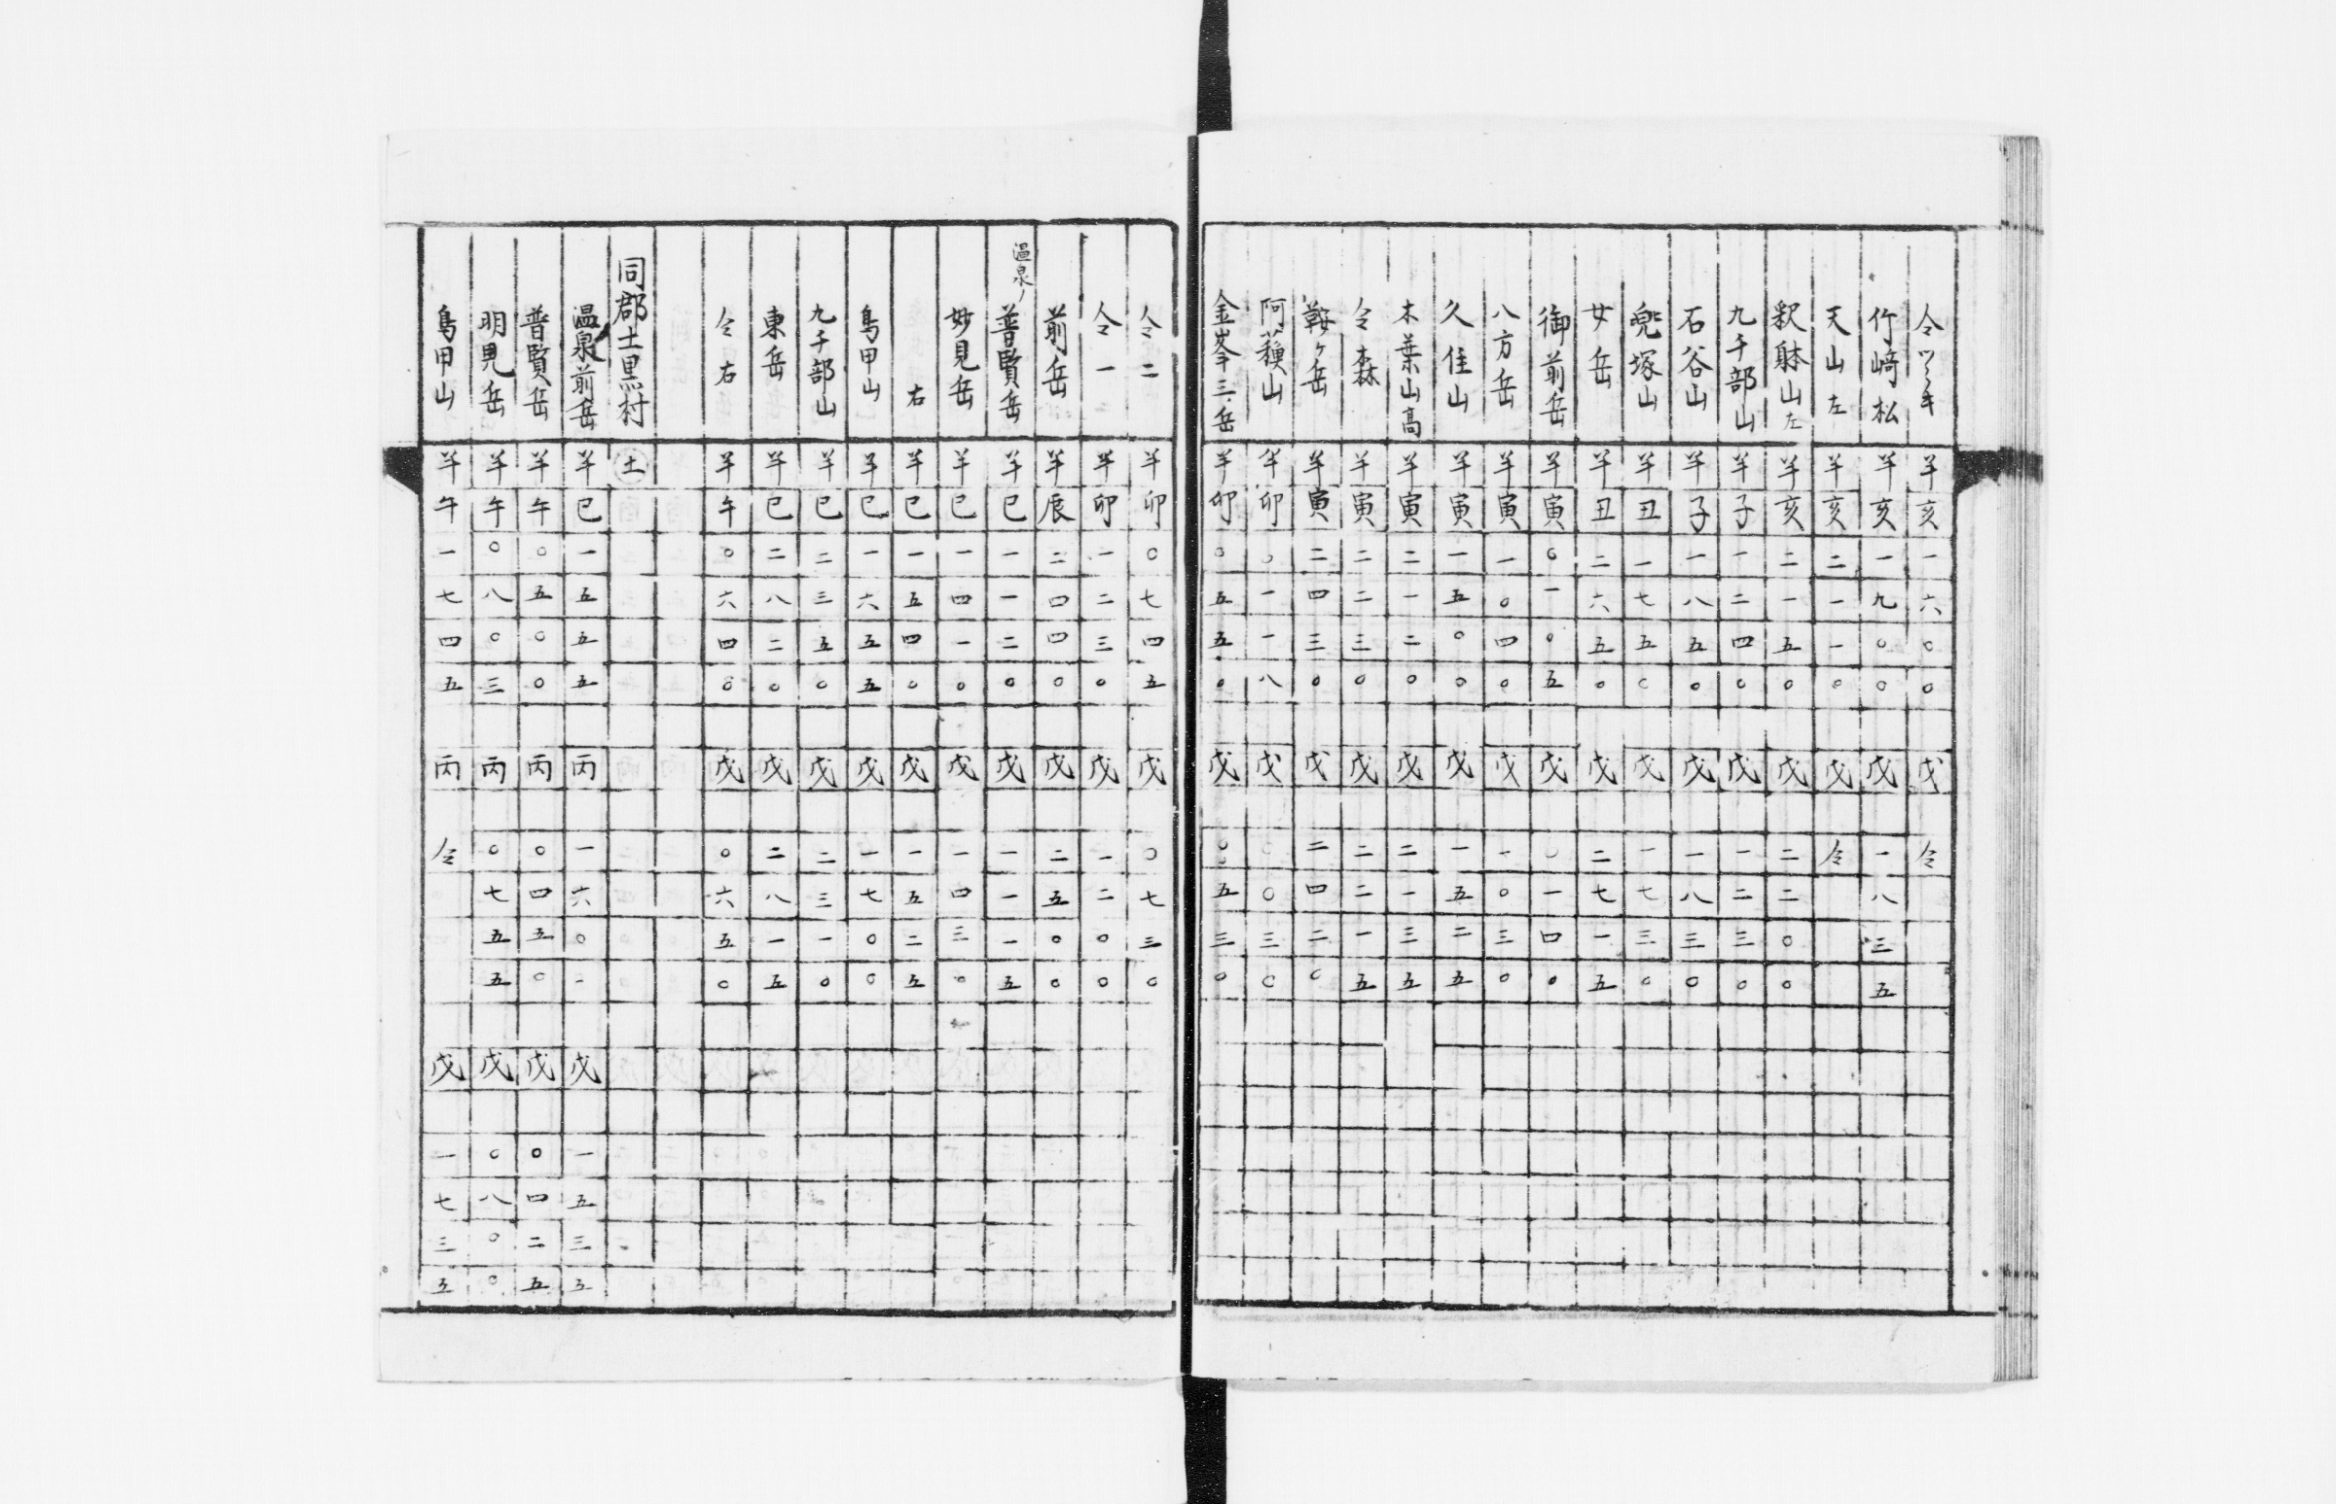 仝ツヽキ 羊 亥 一 六 〇 〇 戊 仝
竹﨑松 羊 亥 一 九 〇 〇 戊 一 八 三 五
天山左 羊 亥 二 一 一 〇 戊 仝
釈躰山左 羊 亥 二 一 五 〇 戊 二 二 〇 〇
九千部山 羊 子 一 二 四 〇 戊 一 二 三 〇
石谷山 羊 子 一 八 五 〇 戊 一 八 三 〇
兜塚山 羊 丑 一 七 五 〇 戊 一 七 三 〇
女岳 羊 丑 二 六 五 〇 戊 二 七 一 五
御前岳 羊 寅 〇 一 〇 五 戊 〇 一 四 〇
八方岳 羊 寅 一 〇 四 〇 戊 一 〇 三 〇
久住山 羊 寅 一 五 〇 〇 戊 一 五 二 五
木葉山高 羊 寅 二 一 二 〇 戊 二 一 三 五
仝森 羊 寅 二 二 三 〇 戊 二 二 一 五
鞍ヶ岳 羊 寅 二 四 三 〇 戊 二 四 二 〇
阿蘓山 羊 卯 〇 一 一 八 戊 〇 〇 三 〇
金峯三岳 羊 卯 〇 五 五 〇 戊 〇 五 三 〇
仝二 羊 卯 〇 七 四 五 戊 〇 七 三 〇
仝一 羊 卯 一 二 三 〇 戊 一 二 〇 〇
前岳 羊 辰 二 四 四 〇 戊 二 五 〇 〇
温泉ノ普賢岳 羊 巳 一 一 二 〇 戊 一 一 一 五
妙見岳 羊 巳 一 四 一 〇 戊 一 四 三 〇
右 羊 巳 一 五 四 〇 戊 一 五 二 五
鳥甲山 羊 巳 一 六 五 五 戊 一 七 〇 〇
九千部山 羊 巳 二 三 五 〇 戊 二 三 一 〇
東岳 羊 巳 二 八 二 〇 戊 二 八 一 五
仝右 羊 午 〇 六 四 〇 戊 〇 六 五 〇
同郡土黒村 土
温泉前岳 羊 巳 一 五 五 五 丙 一 六 〇 戊 一 五 三 五
普賢岳 羊 午 〇 五 〇 〇 丙 〇 四 五 〇 戊 〇 四 二 五
明見岳 羊 午 〇 八 〇 三 丙 〇 七 五 五 戊 〇 八 〇 〇
鳥甲山 羊 午 一 七 四 五 丙 仝 戊 一 七 三 五